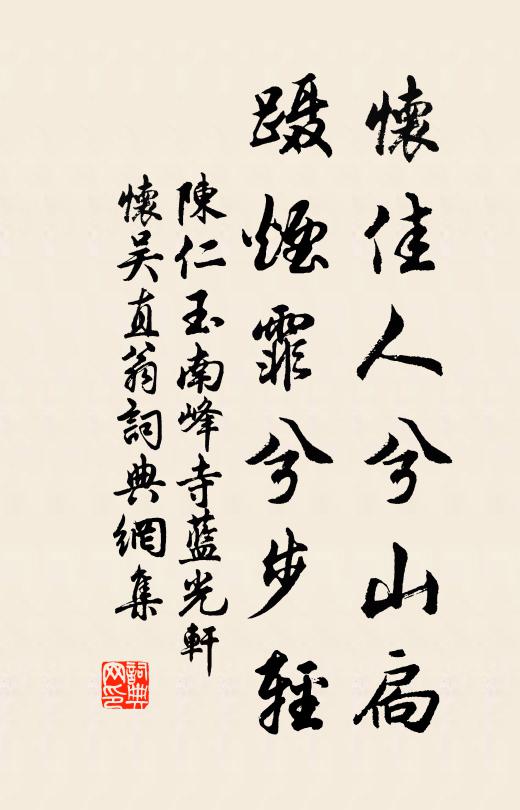 懷佳人兮山扃
躡煙霏兮步輕
陳仁玉南峰寺藍光軒
懷吳直翁詞典網集
詞典
网印